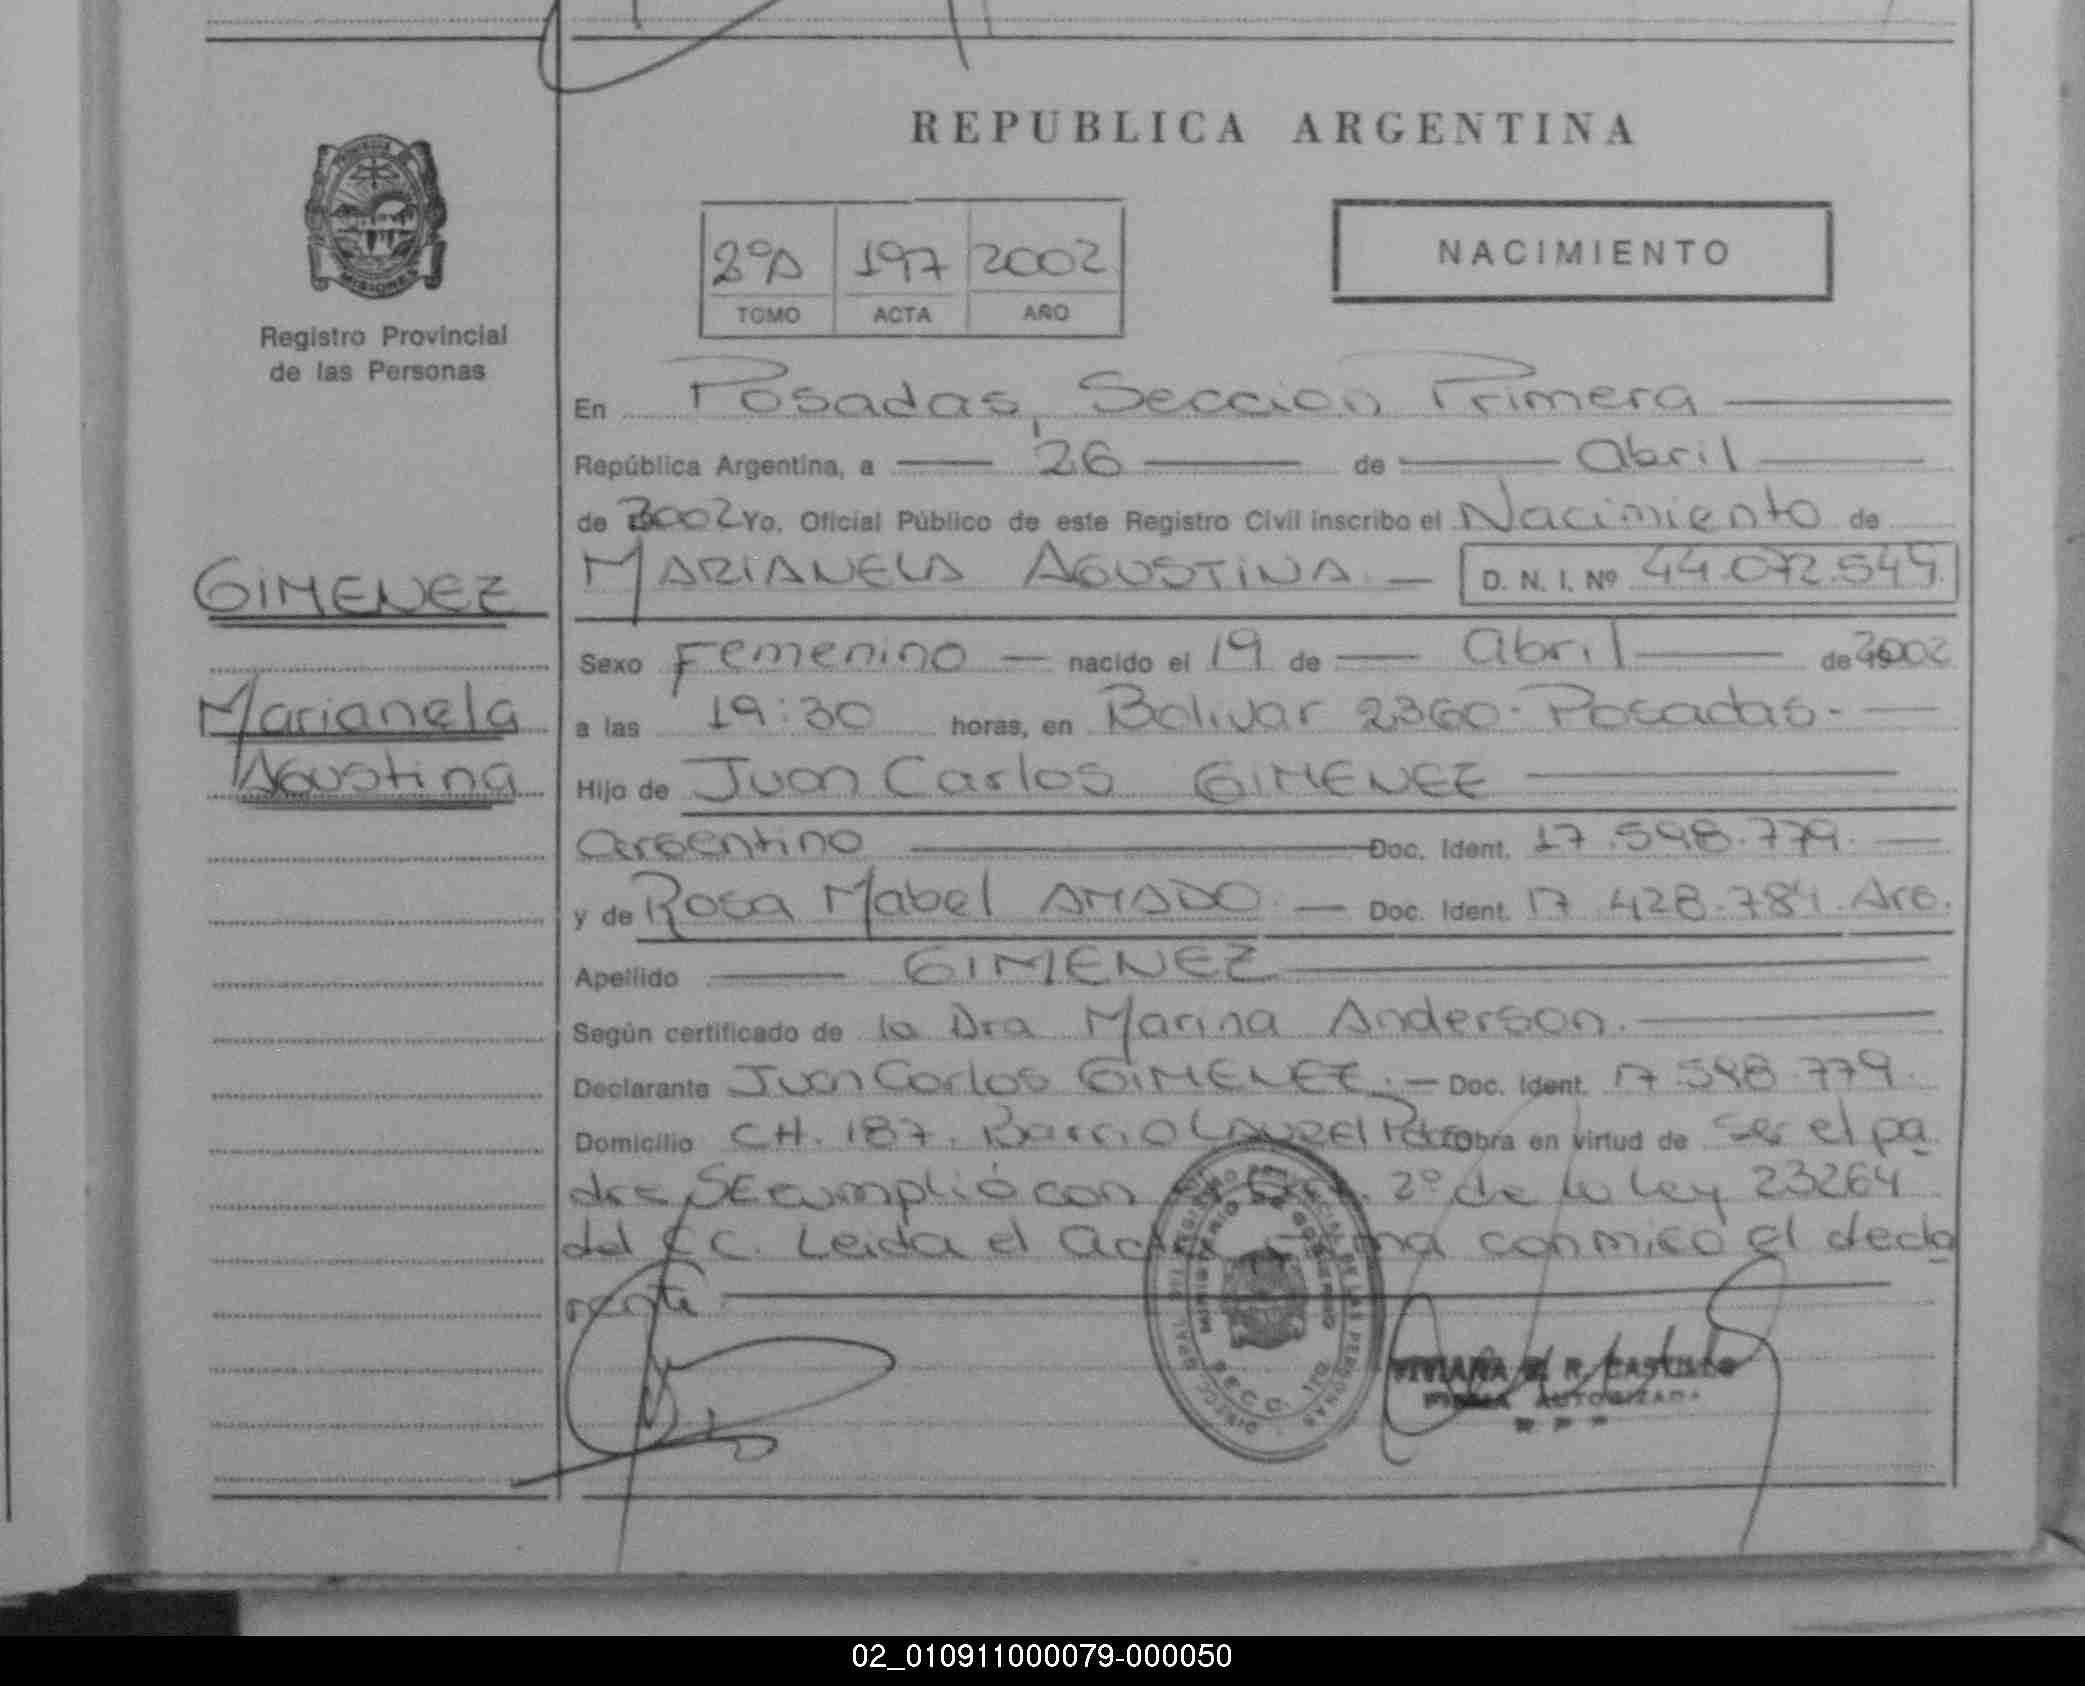 REPUBLICA ARGENTINA
Registro Provincial
de las Personas
2ºA 197 2002
TOMO ACTA AÑO
NACIMIENTO
En Posadas, Seccion Primera
República Argentina, a 26 de Abril
de 2002 Yo, Oficial Público de este Registro Civil inscribo el Nacimiento de
GIMENEZ
Marianela
Agustina
MARIANELA AGUSTINA.— D. N. I. Nº 44.072.549.
Sexo Femenino — nacido el 19 de — Abril — de 2002
a las 19:30 horas, en Bolivar 2360. Posadas.—
Hijo de Juan Carlos GIMENEZ
argentino Doc. Ident. 17.598.779.—
y de Rosa Mabel AMADO.— Doc. Ident. 17.428.784. Arg.
Apellido — GIMENEZ
Según certificado de la Dra Marina Anderson.—
Declarante Juan Carlos GIMENEZ.— Doc. Ident. 17.598.779.
Domicilio CH. 187. Barrio Laurel obra en virtud de ser el pa
dre SE cumplió con 2º de la ley 23264
del CC. Leida el Acta firma conmigo el decla
rante
DIRECC. GRAL. DEL REGISTRO PROVINCIAL DE LAS PERSONAS
MINISTERIO DE GOBIERNO
VIVIANA R. CASTILLO
FIRMA AUTORIZADA
02_010911000079-000050